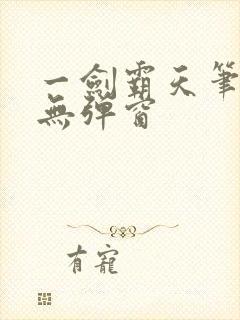 一劍霸天筆
無彈窗
有寵